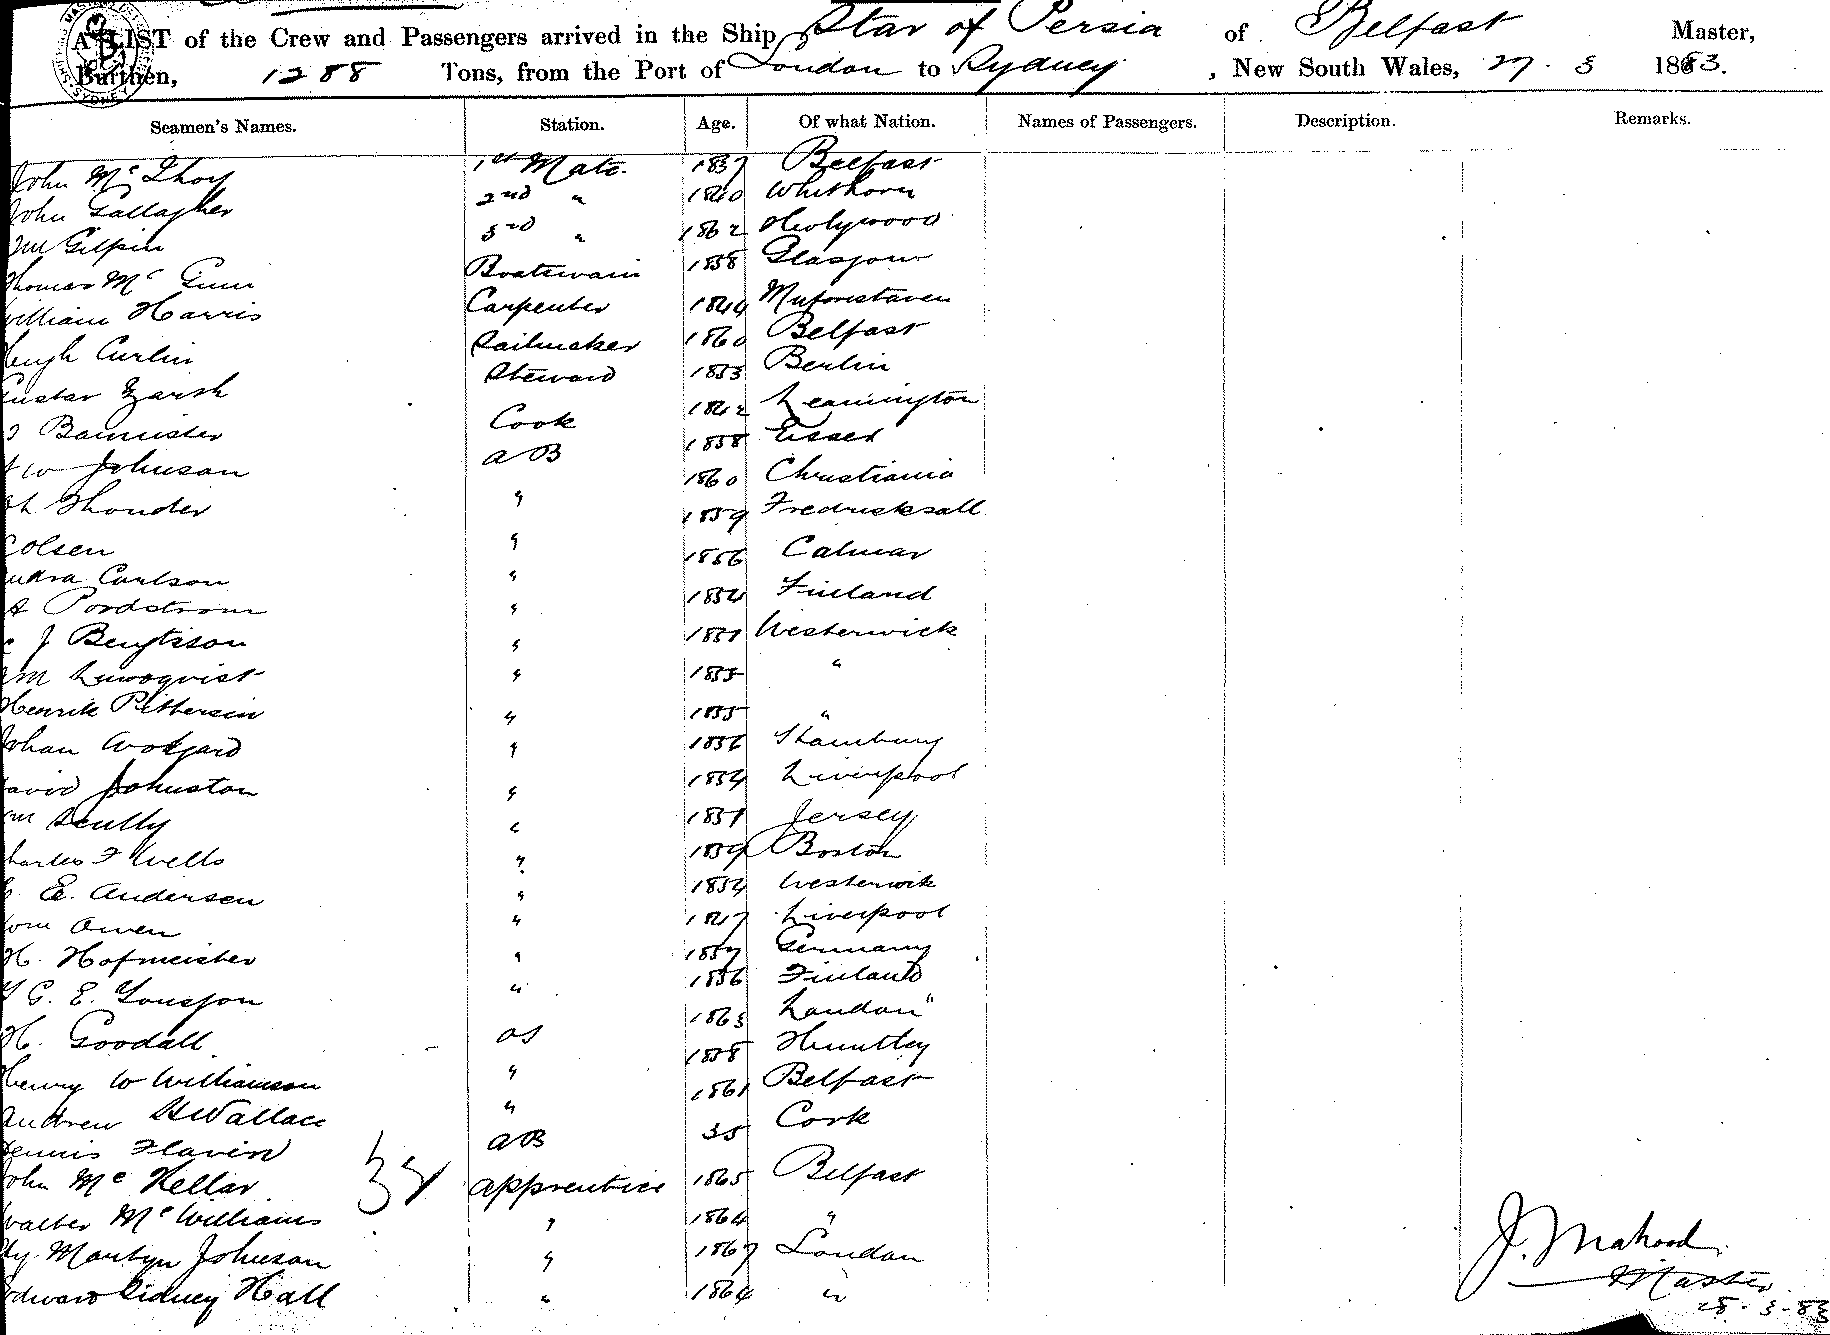 A LIST of the Crew and Passengers arrived in the Ship Star of Persia of Belfast Master,
Burthen, 1288 Tons, from the Port of London to Sydney, New South Wales, 27. 3 1883.
Seamen's Names. Station. Age. Of what Nation. Names of Passengers. Description. Remarks.
John 1st Mate. 1837 Belfast
John Gallagher 2nd " 1840 Whithorn
Gilpin 3rd " 1862 Holywood
Thomas Boatswain 1838 Glasgow
William Harris Carpenter 1844
Hugh Curlin Sailmaker 1860 Belfast
Steward 1853 Berlin
Bannister Cook 1842 Leamington
W Johnson AB 1858 Essex
" 1860 Christiania
Colsen " 1859 Fredricksall
Carlson " 1856 Calmar
" 1854 Finland
J Bengtsson " Westerwick
" 1855 "
Henrik Pettersen " 1855 "
Johan " 1856
David Johnston " 1854 Liverpool
Wm Scully " Jersey
Charles F Wells " 1859 Boston
E. Andersen " 1854 Westerwik
Owen " 1847 Liverpool
H. Hofmeister " 1857 Germany
G. E. " 1856 Finland
H. Goodall OS 1863 London
Henry W Williamson " 1858 Huntley
Andrew H Wallace " 1861 Belfast
Dennis Flavin AB 35 Cork
John McKellar Apprentice 1865 Belfast
Walter McWilliams " 1864 "
Hy. Martyn Johnson " 1867 London
Edward Sidney Hall " 1864 "
J. Mahood
Master
28-3-83